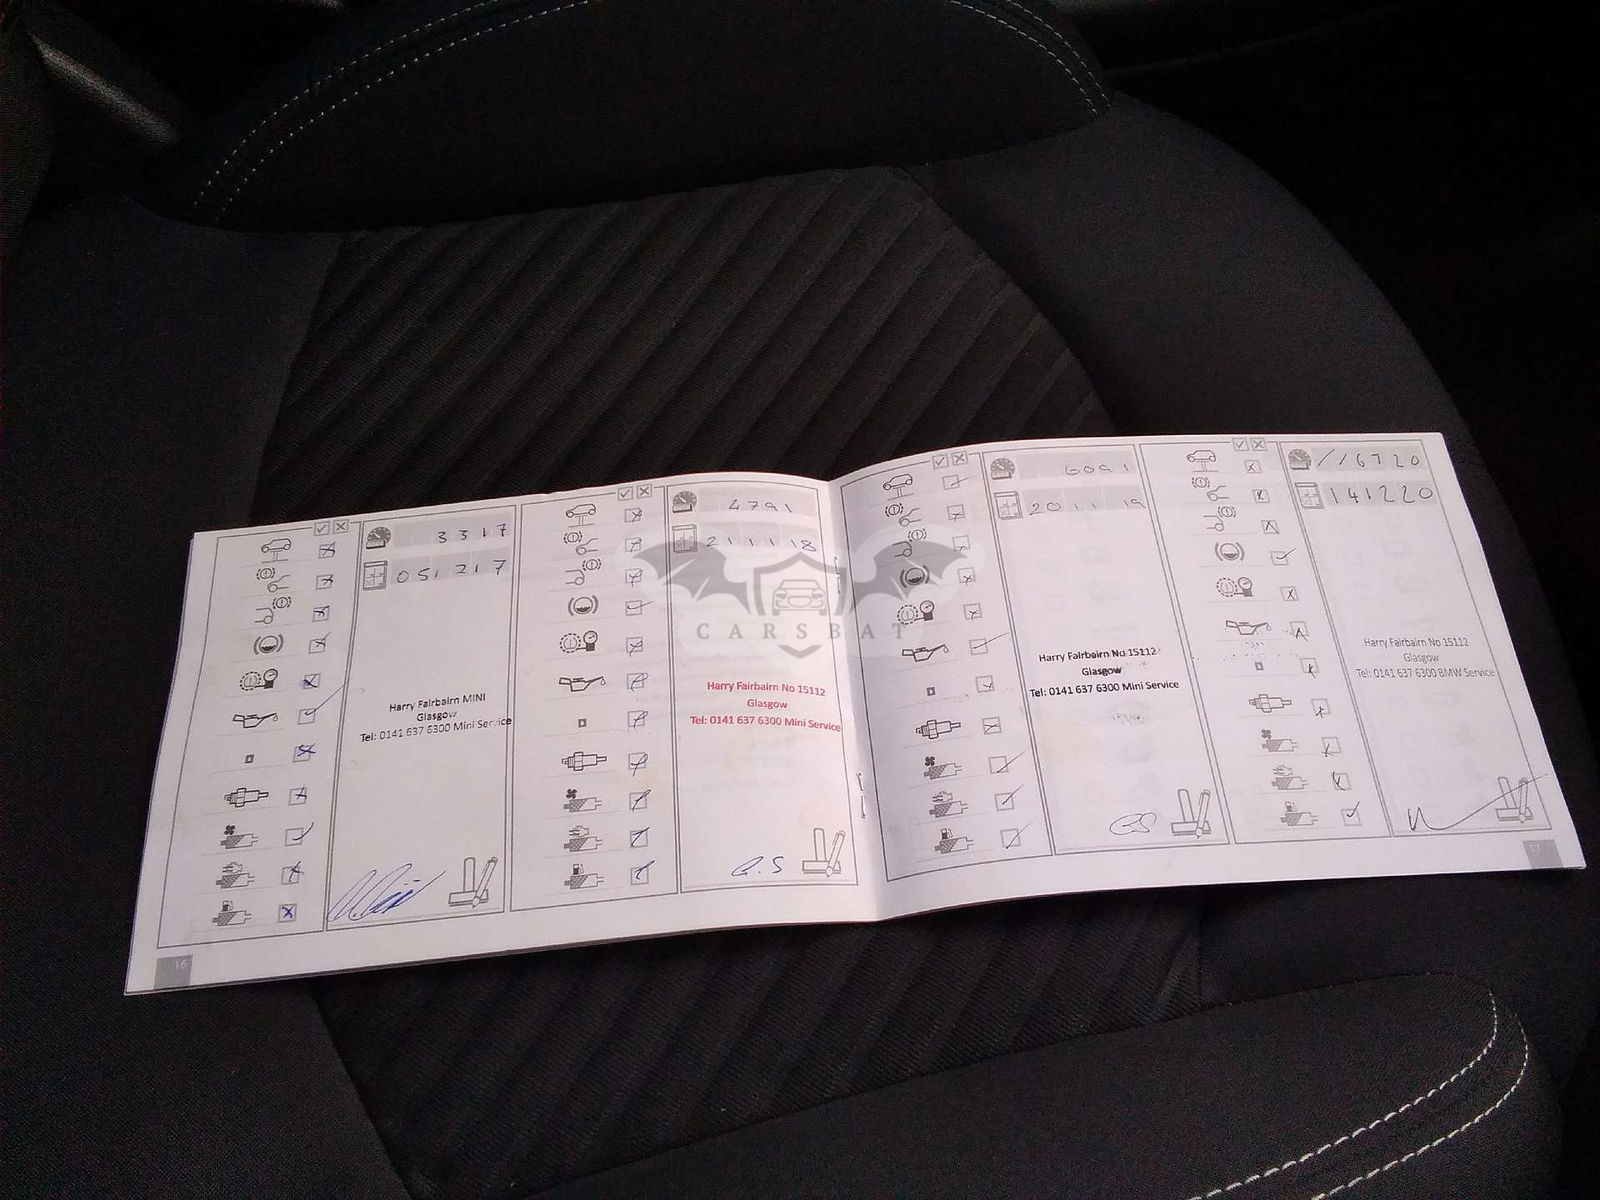 3317
051217
Harry Fairbairn MINI
Glasgow
Tel: 0141 637 6300 Mini Service
16
4791
211118
Harry Fairbairn No 15112
Glasgow
Tel: 0141 637 6300 Mini Service
G.S
CARSBAT
6091
2011 19
Harry Fairbairn No 15112
Glasgow
Tel: 0141 637 6300 Mini Service
GS
//6720
141220
Harry Fairbairn No 15112
Glasgow
Tel: 0141 637 6300 BMW Service
17